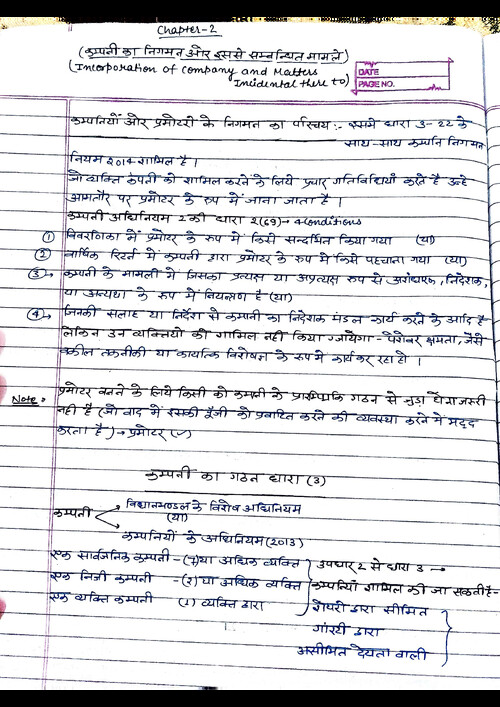 Chapter-2
(कम्पनी का निगमन और इससे सम्बन्धित मामले)
(Incorporation of Company and Matters
Incidental there to)
DATE
PAGE NO.
कम्पनियों और प्रमोटरों के निगमन का परिचय :- इसमें धारा 3-22 के
साथ-साथ कम्पनि निगमन
नियम 2014 शामिल है।
जो व्यक्ति कंपनी को शामिल करने के लिये प्रचार गतिविधियाँ करते है उन्हे
आमतौर पर प्रमोटर के रूप में जाना जाता है।
कम्पनी अधिनियम 2 की धारा 2(69)→ 4 conditions
① विवरणिका में प्रमोटर के रूप में किसे सन्दर्भित किया गया (या)
② वार्षिक रिटर्न में कम्पनी द्वारा प्रमोटर के रूप में किसे पहचाना गया (या)
③→ कम्पनी के मामलों में जिसका प्रत्यक्ष या अप्रत्यक्ष रूप से अशंधारक, निदेशक,
या अन्यथा के रूप में नियन्त्रण है (या)
④→ जिनकी सलाह या निर्देश से कम्पनी का निदेशक मंडल कार्य करने के आदि है
लेकिन उन व्यक्तियों को शामिल नहीं किया जायेगा - पेशेवर क्षमता, जैसे
वकील तकनीकी या विशेषज्ञ के रूप में कार्य कर रहा हो।
Note:- प्रमोटर बनने के लिये किसी को कम्पनी के प्रारम्भिक गठन से जुड़ा होना जरूरी
नही है (जो बाद में इसकी पूँजी को प्रवाहित करने की व्यवस्था करने में मदद
करता है)→ प्रमोटर (✓)
कम्पनी का गठन धारा (3)
कम्पनी विधानमण्डल के विशेष अधिनियम
(या)
कम्पनियों के अधिनियम (2013)
एक सार्वजनिक कम्पनी - (7) या अधिक व्यक्ति उपधारा 2 से धारा 3 →
एक निजी कम्पनी - (2) या अधिक व्यक्ति कम्पनियाँ शामिल की जा सकती है-
एक व्यक्ति कम्पनी (1) व्यक्ति द्वारा शेयरों द्वारा सीमित
गारंटी द्वारा
असीमित देयता वाली